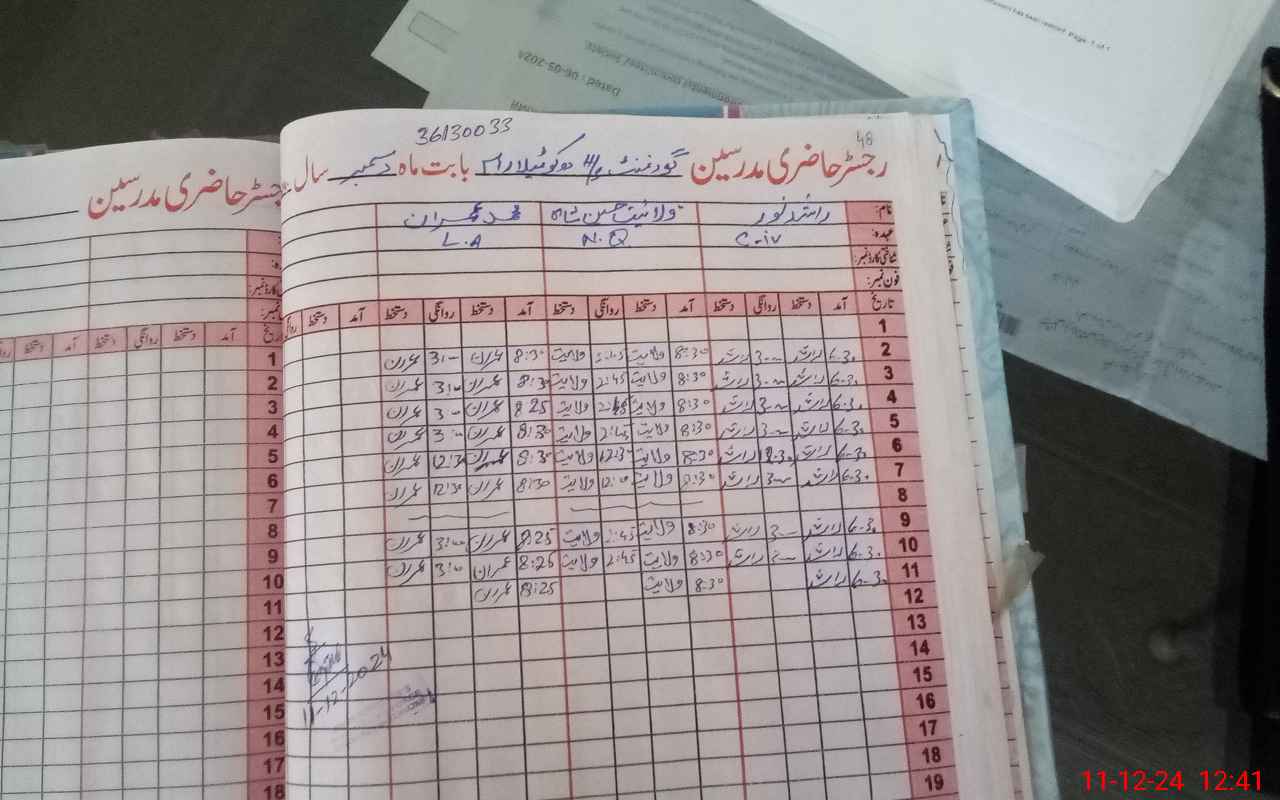 36130033
48
رجسٹر حاضری مدرسین گورنمنٹ بابت ماہ دسمبر سال
نام: راشد نور ولائیت حسین شاہ محمد عمران
عہدہ: C-iv N.Q L.A
شناختی کارڈ نمبر:
فون نمبر:
تاریخ آمد دستخط روانگی دستخط آمد دستخط روانگی دستخط آمد دستخط روانگی دستخط آمد دستخط روانگی
1
2 6-30 راشد 3-- راشد 8:30 ولایت 2:45 ولایت 8:30 عمران 3:- عمران
3 6-30 راشد 3-- راشد 8:30 ولایت 2:45 ولایت 8:30 عمران 3:00 عمران
4 6-30 راشد 3-- راشد 8:30 ولایت 2:45 ولایت 8:25 عمران 3:0 عمران
5 6-30 راشد 3-- راشد 8:30 ولایت 2:45 ولایت 8:30 عمران 3:00 عمران
6 6-30 راشد 12-30 راشد 8:30 ولایت 12:30 ولایت 8:30 عمران 12:30 عمران
7 6-30 راشد 3-- راشد 8:30 ولایت ولایت 8:30 عمران 12:30 عمران
8
9 6-30 راشد 3-- راشد 8:30 ولایت 2:45 ولایت 8:25 عمران 3:00 عمران
10 6-30 راشد راشد 8:30 ولایت 2:45 ولایت 8:25 عمران 3:00 عمران
11 6-30 راشد 8-30 ولایت 8:25 عمران
12
13
14
15
16
17
18
19
11-12-2024
رجسٹر حاضری مدرسین
تاریخ آمد دستخط روانگی دستخط آمد دستخط
1
2
3
4
5
6
7
8
9
10
11
12
13
14
15
16
17
18
Dated: 06-05-2024
Page 1 of 1
11-12-24 12:41